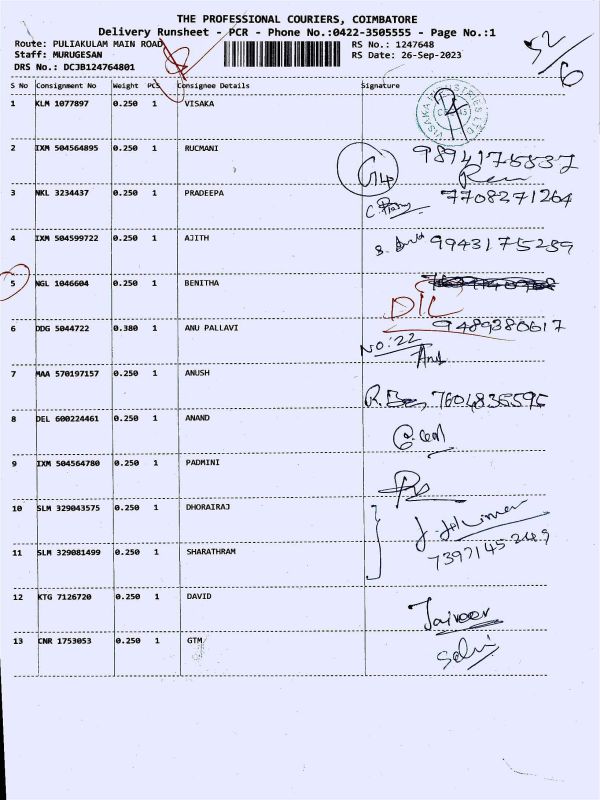 THE PROFESSIONAL COURIERS, COIMBATORE
Delivery Runsheet - PCR - Phone No.:0422-3505555 - Page No.:1
Route: PULIAKULAM MAIN ROAD RS No.: 1247648
Staff: MURUGESAN RS Date: 26-Sep-2023
DRS No.: DCJB124764801
52/6
S No Consignment No Weight PCS Consignee Details Signature
1 KLM 1077897 0.250 1 VISAKA
VISAKA INDUSTRIES LTD
2 IXM 504564895 0.250 1 RUCMANI 9894175837
3 NKL 3234437 0.250 1 PRADEEPA 7708271264
4 IXM 504599722 0.250 1 AJITH 9943175289
5 NGL 1046604 0.250 1 BENITHA
DIL
6 DDG 5044722 0.380 1 ANU PALLAVI 9489380617
NO:22
7 MAA 570197157 0.250 1 ANUSH
7604835595
8 DEL 600224461 0.250 1 ANAND
9 IXM 504564780 0.250 1 PADMINI
10 SLM 329043575 0.250 1 DHORAIRAJ
11 SLM 329081499 0.250 1 SHARATHRAM 7397145249
12 KTG 7126720 0.250 1 DAVID
13 CNR 1753053 0.250 1 GTM
Selvi